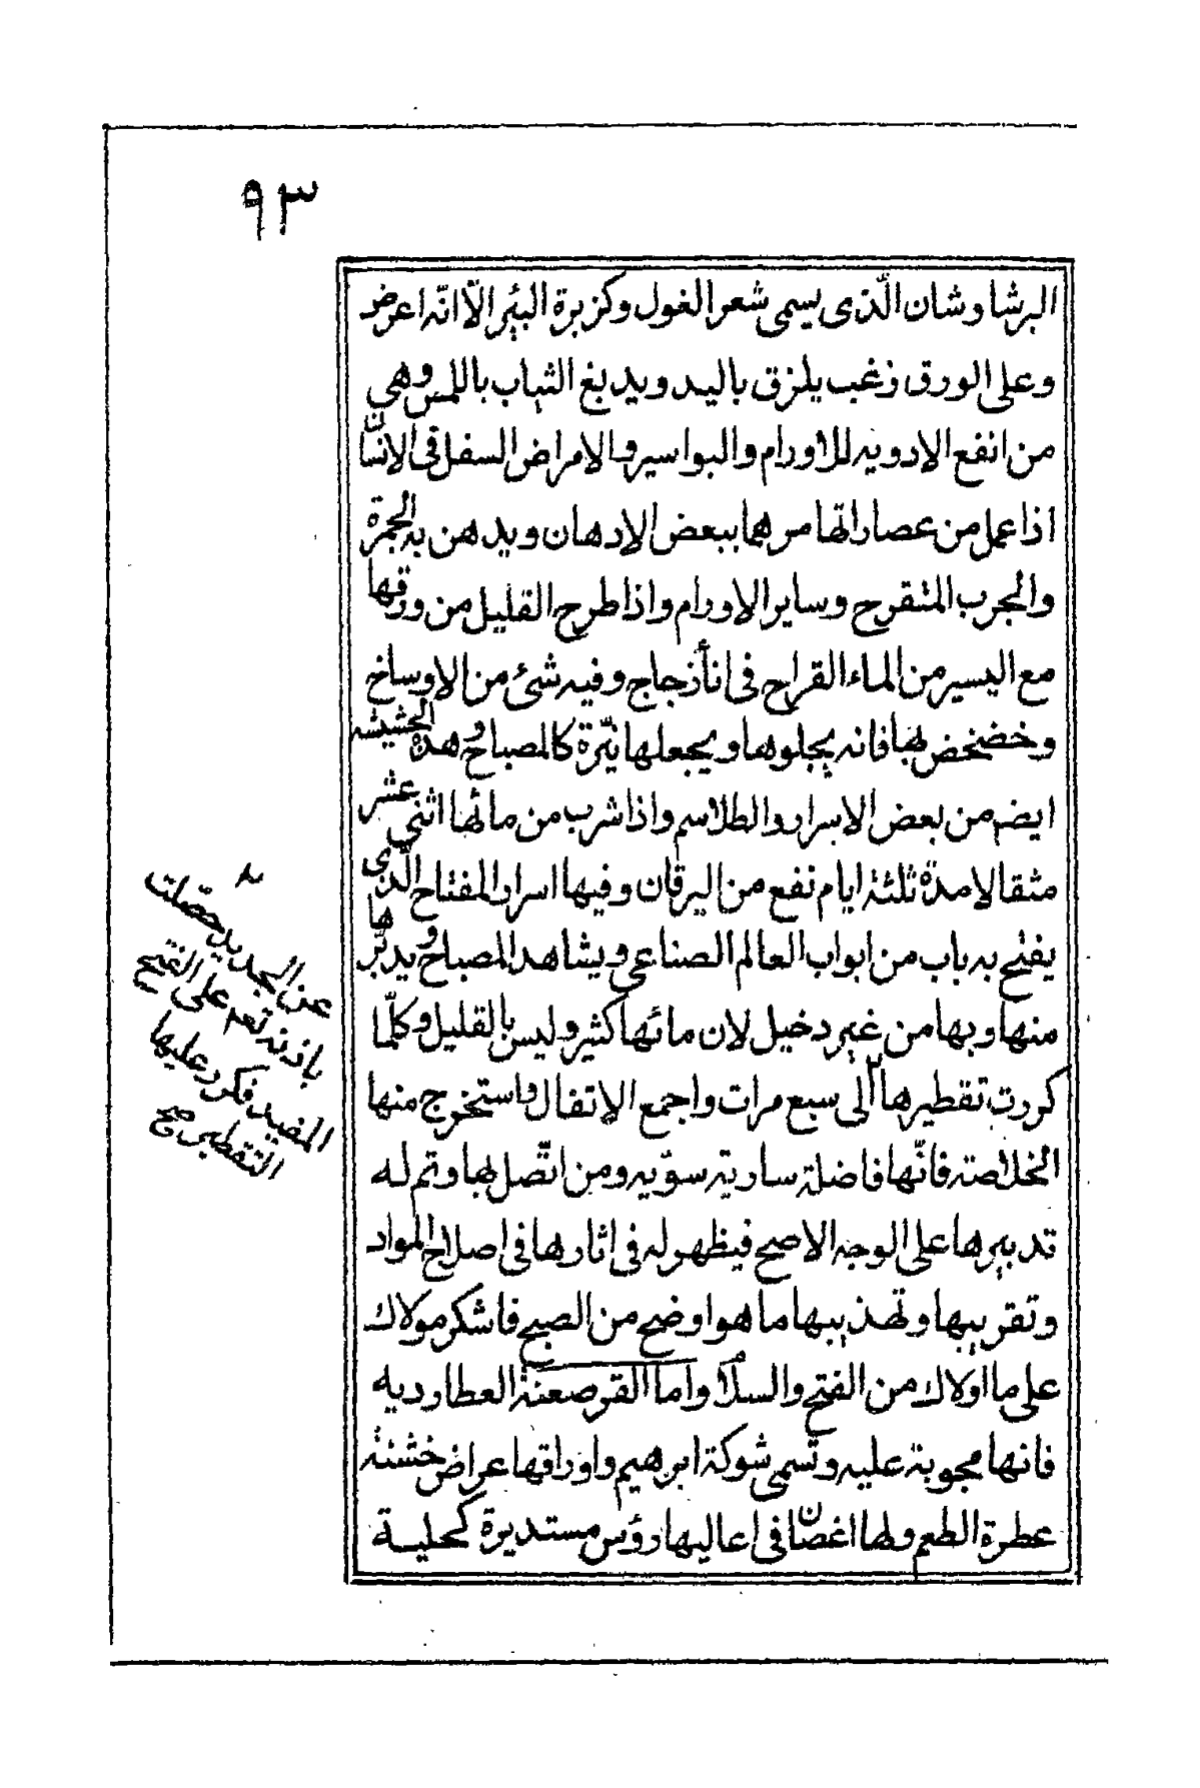 ٩٣
البرشاوشان الّذى يسمى شعر الغول وكزبرة البئر الّا انّه اعرض
وعلى الورق زغب يلزق باليد ويدبغ الثياب باللمس وهى
من انفع الادويه للاورام والبواسير والامراض السفل فى الانسان
اذا عمل من عصاراتها مرهما ببعض الادهان ويدهن به الحمرة
والجرب المتقرح وساير الاورام واذا طرح القليل من ورقها
مع اليسير من الماء القراح فى انأ زجاج وفيه شئ من الاوساخ
وخضخض بها فانه يجلوها ويجعلها نيّرة كالمصباح وهذه الحشيشه
ايضم من بعض الاسرار والطلاسم واذا شرب من مائها اثنى عشر
مثقالا مدة ثلثة ايام نفع من اليرقان وفيها اسرار المفتاح الّذى
يفتح به باب من ابواب العالم الصناعى ويشاهد المصباح ويدبّرها
منها وبها من غير دخيل لان مائها كثير وليس بالقليل وكلّما
كررت تقطيرها الى سبع مرات واجمع الاتفال واستخرج منها
الخلاصته فانّها فاضلة سارية سوّيه ومن اتّصل بها وتم له
تدبيرها على الوجه الاصح فيظهر له فى اثارها فى اصلاح المواد
وتقريبها وتهذيبها ما هو اوضح من الصبح فاشكر مولاك
على ما اولاك من الفتح والسلام واما القرصعنة العطارديه
فانها مجوبة عليه وتسمى شوكة ابرهيم واوراقها عراض خشنة
عطرة الطعم ولها اغصان فى اعاليها رؤس مستديرة كحلية
عن الجديد حصّلت
باذنه تعم على الفتح
المفيد فكرر عليها
التقطير صح